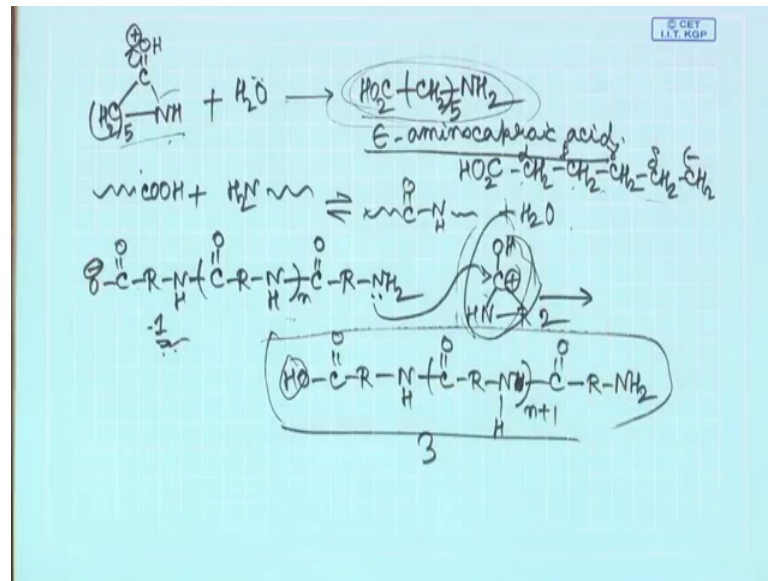 © CET
I.I.T. KGP
⊕OH
C
(H₂C)₅—NH + H₂O ⟶ HO₂C-(CH₂)₅-NH₂
ε-aminocaproic acid.
HO₂C-CH₂-CH₂-CH₂-CH₂-CH₂
COOH + H₂N ⇌ C-N + H₂O
O
H
O O O OH
⊖O-C-R-N-(C-R-N)n-C-R-NH₂ C⊕
H H HN-R 2 ⟶
1
O O O
HO-C-R-N-(C-R-N)n+1-C-R-NH₂
H H
3